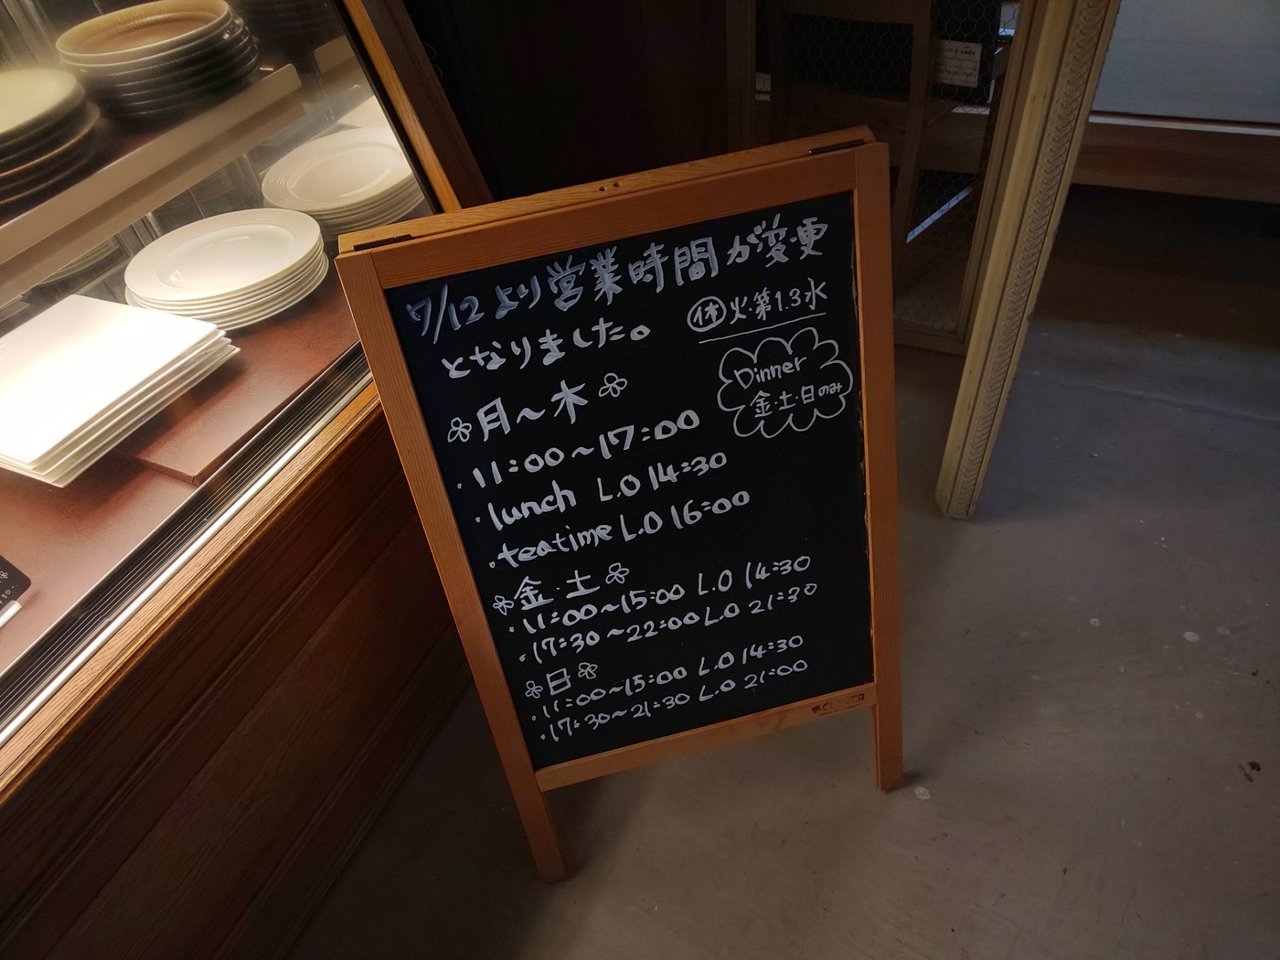 7/12より営業時間が変更
となりました。
㊡火・第1.3水
Dinner
金・土・日のみ
月〜木
・11:00〜17:00
・lunch L.O 14:30
・teatime L.O 16:00
金・土
・11:00〜15:00 L.O 14:30
・17:30〜22:00 L.O 21:30
日
・11:00〜15:00 L.O 14:30
・17:30〜21:30 L.O 21:00